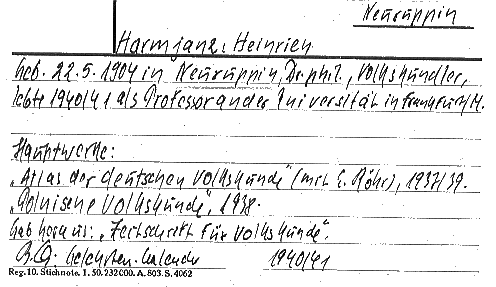 Neuruppin
Harmjanz, Heinrich
Geb. 22.5.1904 in Neuruppin, Dr. phil., Volkskundler,
lebte 1940/41 als Professor an der Universität in Frankfurt/M.
Hauptwerke:
„Atlas der deutschen Volkskunde" (mit E. Röhr), 1937/39.
Volkskunde", 1938.
Gab heraus: „Zeitschrift für Volkskunde".
Gelehrten-Kalender 1940/41
Reg. 10. Stichnote. 1. 50. 232000. A. 803. S. 4062